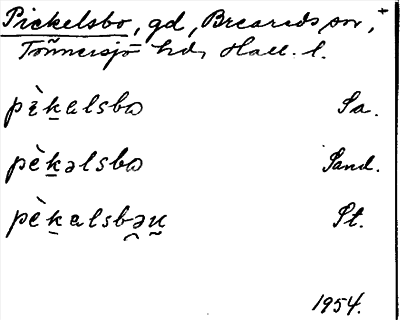 Pickelsbo, gd, Breareds sn, +
Tönnersjö hd, Hall. l.
pɛ̀k̠alsbɷ Sa.
pèk̠əlsbɷ Sand.
pèk̠alsbə̯u̠ St.
1954.